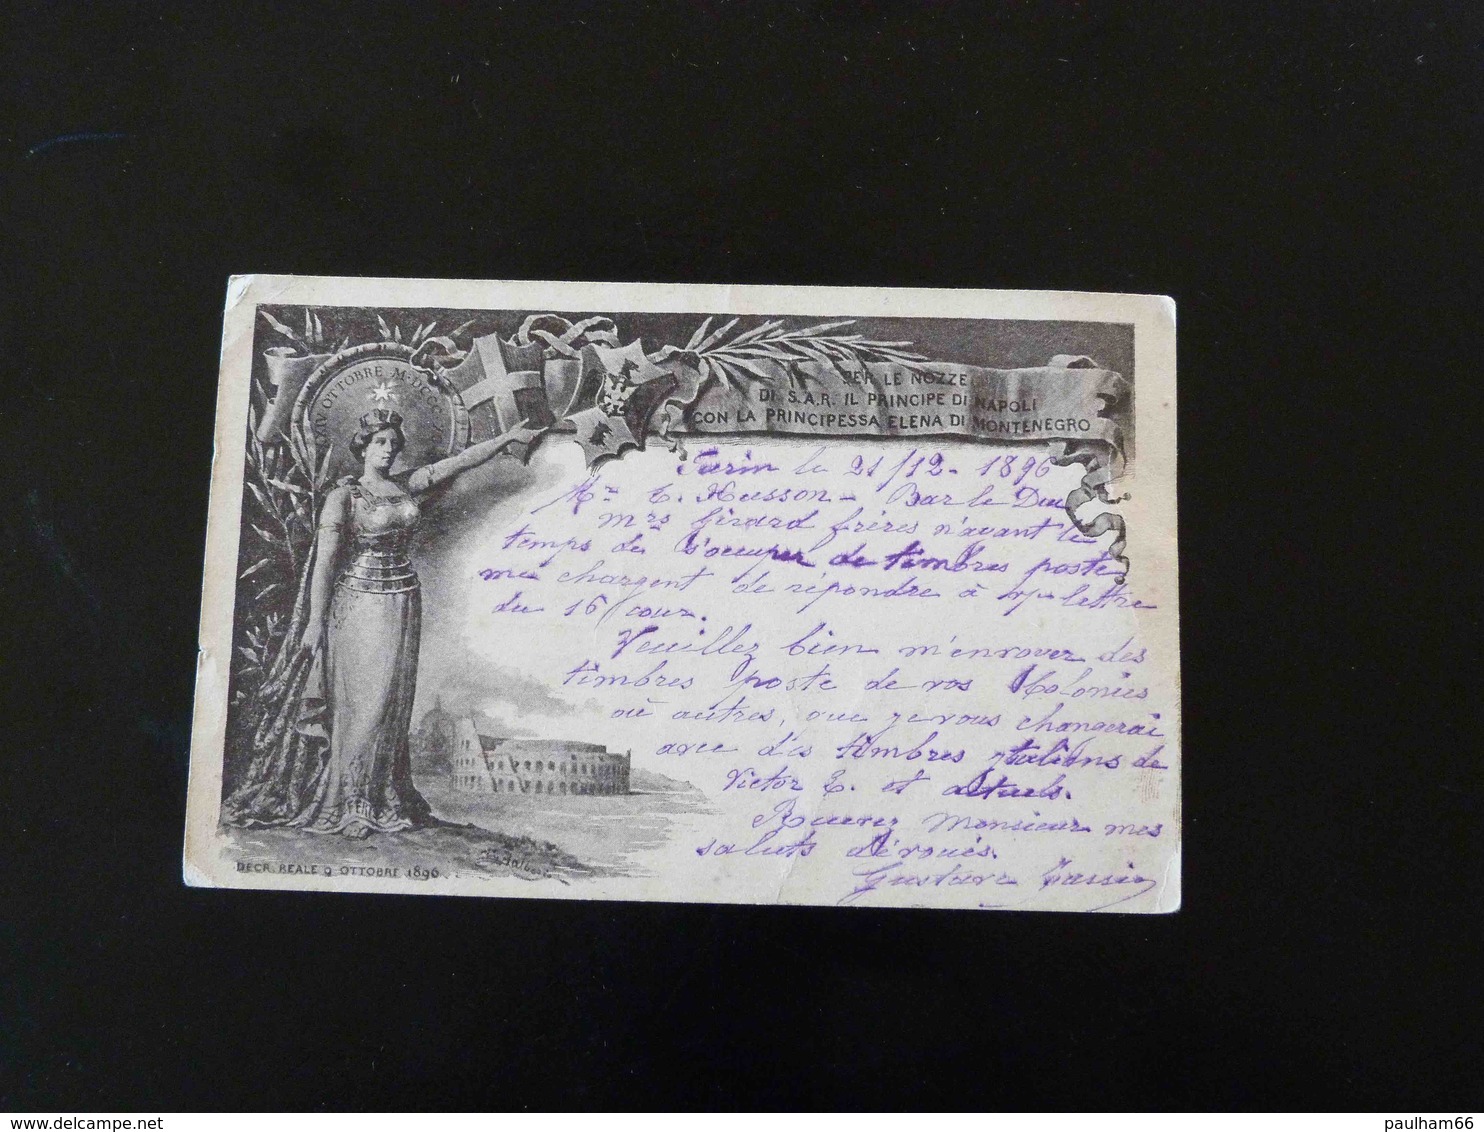 XXIV OTTOBRE M·DCCC
PER LE NOZZE
DI S.A.R. IL PRINCIPE DI NAPOLI
CON LA PRINCIPESSA ELENA DI MONTENEGRO
Turin le 21/12 - 1896
Mr E. Husson - Bar le Duc
Mrs Girard frères n'ayant le
temps de s'occuper de timbres poste
me chargent de répondre à Vre lettre
du 16 cour.
Veuillez bien m'envoyer des
timbres poste de vos Colonies
où autres, que je vous changerai
avec des timbres italiens de
Victor E. et actuels.
Recevez Monsieur mes
saluts dévoués.
Gustave
FERT
DECR. REALE 9 OTTOBRE 1896
delcampe.net
paulham66